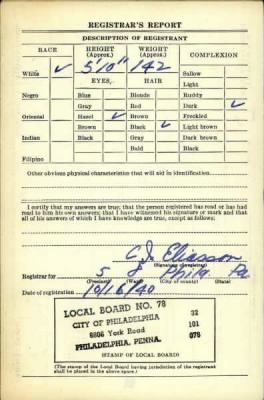 REGISTRAR'S REPORT
DESCRIPTION OF REGISTRANT
RACE HEIGHT (Approx.) WEIGHT (Approx.) COMPLEXION
White ✓ 5'10" 142 Sallow
EYES HAIR Light
Negro Blue Blonde Ruddy
Gray Red Dark ✓
Oriental Hazel ✓ Brown Freckled
Brown Black ✓ Light brown
Indian Black Gray Dark brown
Bald Black
Filipino
Other obvious physical characteristics that will aid in identification
I certify that my answers are true; that the person registered has read or has had
read to him his own answers; that I have witnessed his signature or mark and that
all of his answers of which I have knowledge are true, except as follows:
C. J. Eliasson
(Signature of registrar)
Registrar for 5 8 Phila. Pa
(Precinct) (Ward) (City or county) (State)
Date of registration 10/16/40
LOCAL BOARD NO. 78 32
CITY OF PHILADELPHIA 101
6806 York Road 078
PHILADELPHIA, PENNA.
(STAMP OF LOCAL BOARD)
(The stamp of the Local Board having jurisdiction of the registrant
shall be placed in the above space.)